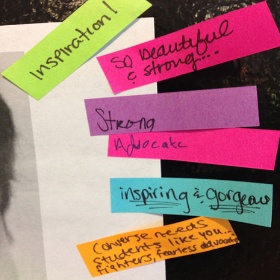 Inspiration!
So beautiful
& strong...
Strong
Advocate
inspiring & gorgeous
Converse needs
students like you...
Fighters, fearless advocates